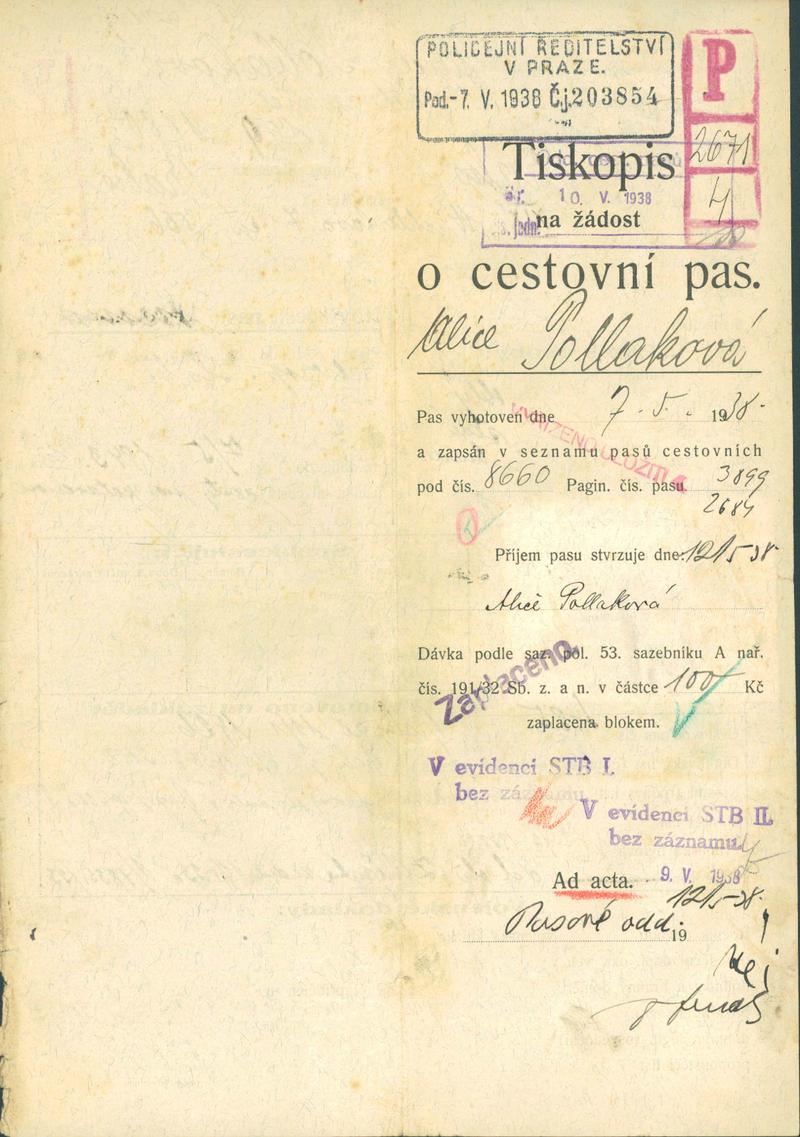 POLICEJNÍ ŘEDITELSTVÍ
V PRAZE.
Pod.-7. V. 1938 Č.j. 203854
P
2671
4
Tiskopis
10. V. 1938
na žádost
o cestovní pas.
Alice Pollaková
Pas vyhotoven dne 7. 5. 1938.
VYŘÍZENO ULOŽITI
a zapsán v seznamu pasů cestovních
pod čís. 8660 Pagin. čís. pasu 3899
2684
Příjem pasu stvrzuje dne: 12/5 38
Alice Pollaková
Dávka podle saz. pol. 53. sazebníku A nař.
čís. 191/32 Sb. z. a n. v částce 100 Kč
Zaplaceno.
zaplacena blokem.
V evidenci STB I.
bez záznamu
V evidenci STB II.
bez záznamu
9. V. 1938
Ad acta. 12/5 38.
Pasové odd.
19